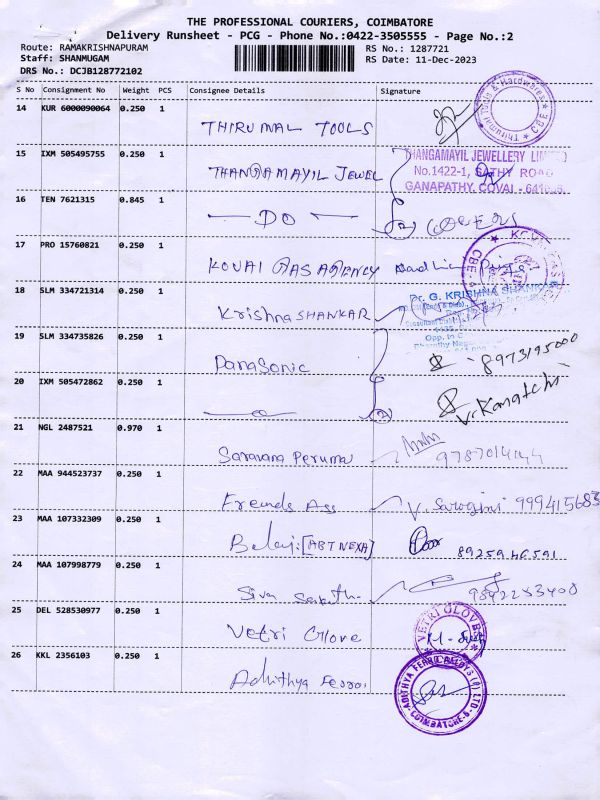 THE PROFESSIONAL COURIERS, COIMBATORE
Delivery Runsheet - PCG - Phone No.:0422-3505555 - Page No.:2
Route: RAMAKRISHNAPURAM RS No.: 1287721
Staff: SHANMUGAM RS Date: 11-Dec-2023
DRS No.: DCJB128772102
S No Consignment No Weight PCS Consignee Details Signature
14 KUR 6000090064 0.250 1
THIRUMAL TOOLS
Thirumal Tools & Hardwares CBE
15 IXM 505495755 0.250 1
THANGAMAYIL JEWEL
THANGAMAYIL JEWELLERY LIMITED
No.1422-1, SATHY ROAD
GANAPATHY, COVAI - 641006.
16 TEN 7621315 0.845 1
DO
2 COVERS
17 PRO 15760821 0.250 1
KOVAI GAS AGENCY
CBE
18 SLM 334721314 0.250 1
Krishna SHANKAR
Dr. G. KRISHNA SHANKAR
19 SLM 334735826 0.250 1
Panasonic
8973195000
20 IXM 505472862 0.250 1
V. Kamatchi
21 NGL 2487521 0.970 1
Saravana Perumal
22 MAA 944523737 0.250 1
Freinds Ass V. Sarogini 999415683
23 MAA 107332309 0.250 1
Balaji [ABT NEXA] 8925946591
24 MAA 107998779 0.250 1
Siva 9842283408
25 DEL 528530977 0.250 1
Vetri Glove
VETRI GLOVES
26 KKL 2356103 0.250 1
Adhithya Ferro
ADITHYA FERRO ALLOYS (P) LTD COIMBATORE-6